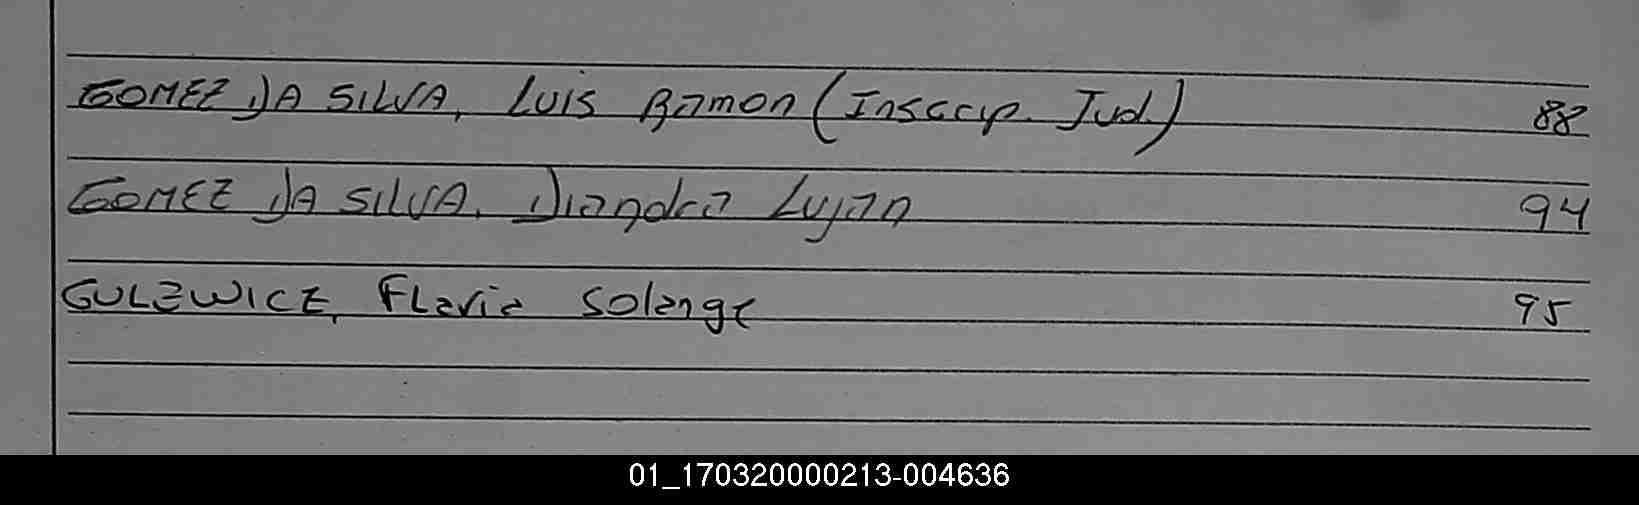 GOMEZ DA SILVA, Luis Ramon (Inscrip. Jud.) 88
GOMEZ DA SILVA, Diandra Lujan 94
GULEWICZ, Flavia Solange 95
01_170320000213-004636